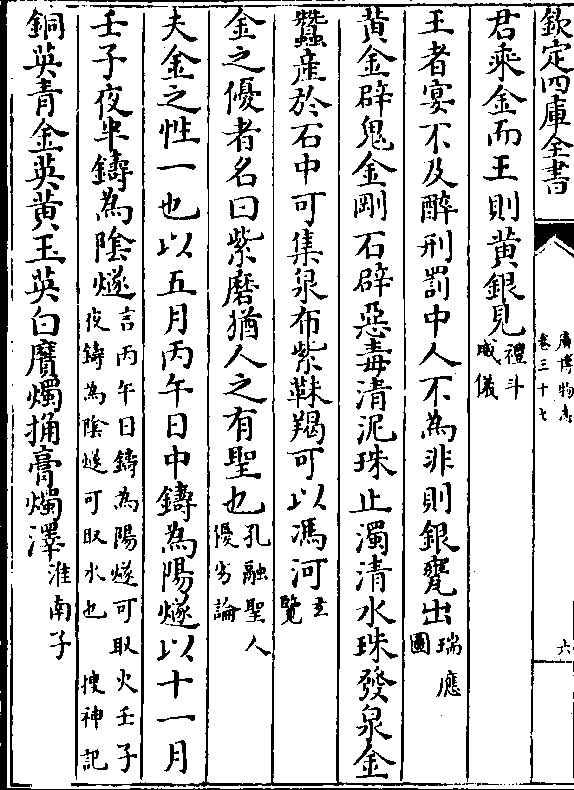 欽定四庫全書
廣博物志
卷三十七
六
君乘金而王則黄銀見禮斗
威儀
王者宴不及醉刑罰中人不為非則銀甕出瑞應
圖
黄金辟鬼金剛石辟惡毒清泥珠止濁清水珠發泉金
蠶産於石中可集泉布紫靺羯可以馮河玄
覽
金之優者名曰紫磨猶人之有聖也孔融聖人
優劣論
夫金之性一也以五月丙午日中鑄為陽燧以十一月
壬子夜半鑄為陰燧言丙午日鑄為陽燧可取火壬子
夜鑄為陰燧可取水也 搜神記
銅英青金英黄玉英白䵃燭捔膏燭澤淮南子